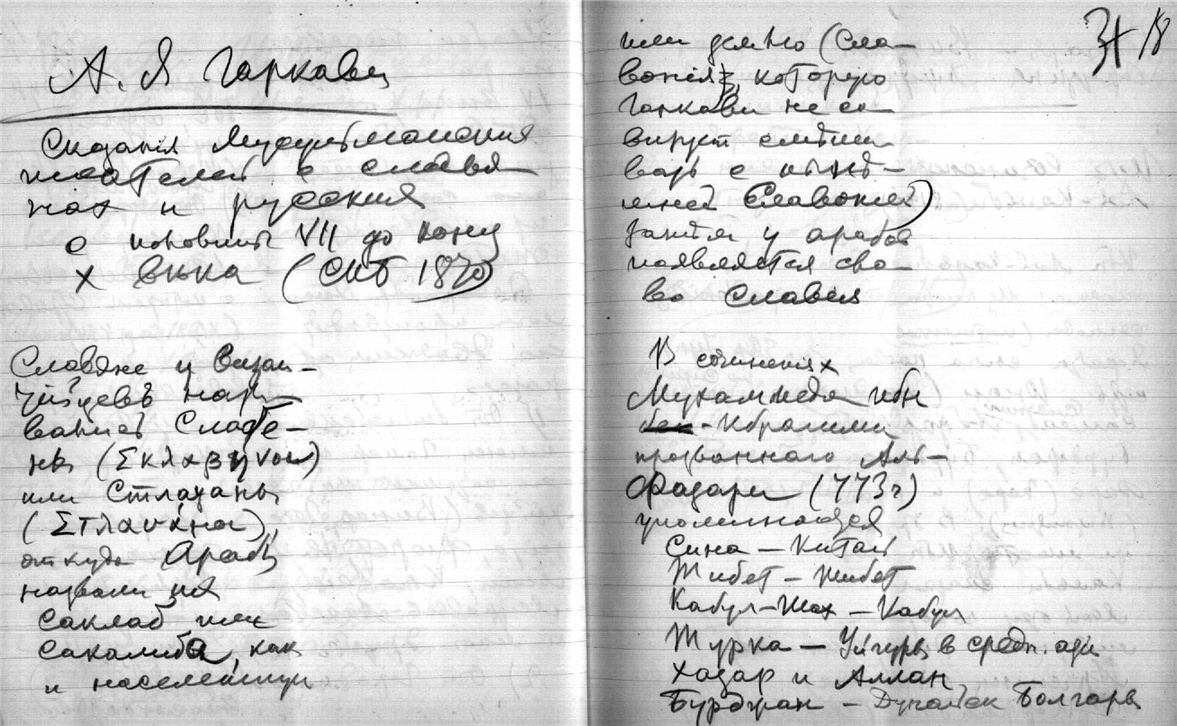 А. Я Гаркави
Сказания Мусульманских
писателей о славя
нах и русских
с половины VII до конца
X века (СПб 1870)
Словяне у Визан-
тійцевъ назы-
вались Слабе-
нъ (Σκλαβηνοι)
или Стлаханъ
(Στλαυάνοι),
откуда Арабы
назвали их
Саклаб или
сакалиба, как
и населенную
ими землю (Сла-
вонія), которую
Гаркави не со-
вѣтует смѣши-
вать с нынѣ-
шней Славоніей)
затем у арабов
появляется сло-
во Славія
31 18
В сочиненіях
Мухаммеда ибн
-Ибрагима
прозванного Аль-
Фазари (773 г)
упоминающая
Сина — Китай
Тибет — Тибет
Кабул-Шах — Кабул
Турка — Уйгуры в средн. ази
Хазар и Аллан
Бурджан — Дунайск Болгары